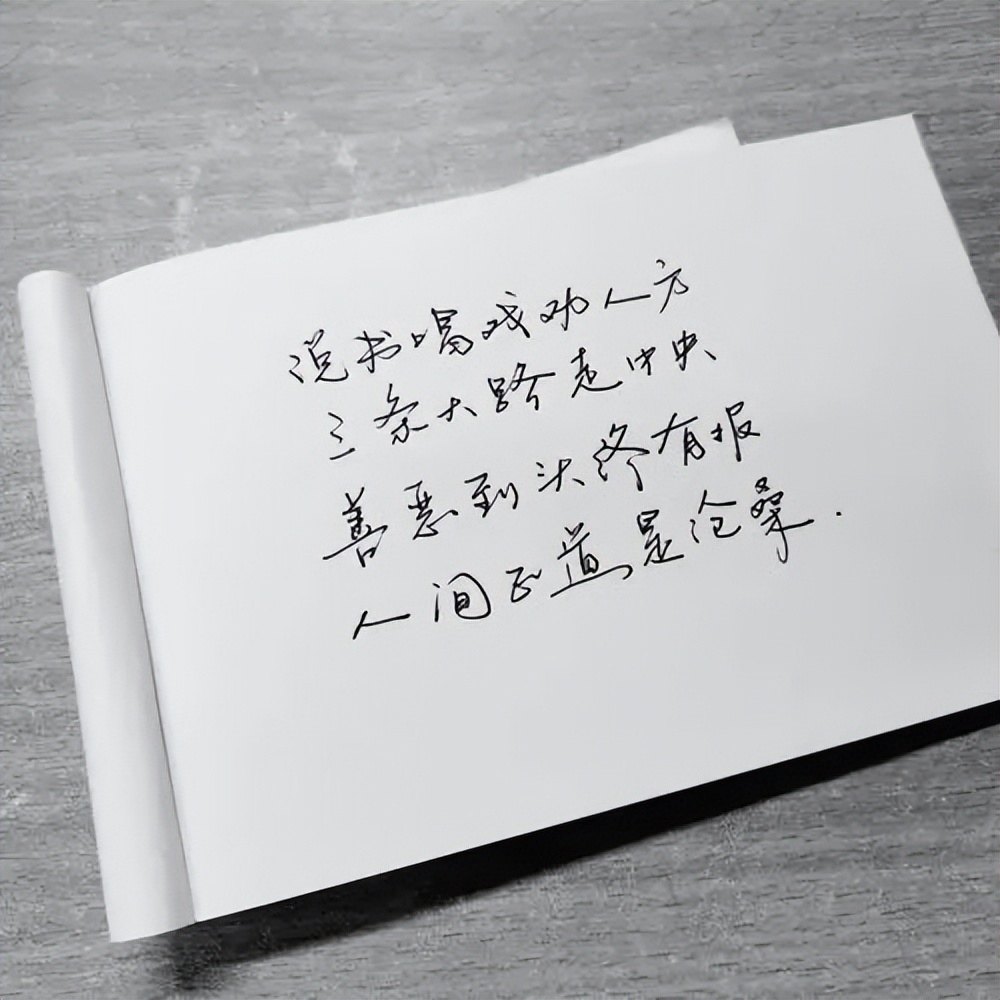 说书喝戏劝人方
三条大路走中央
善恶到头终有报
人间正道是沧桑.